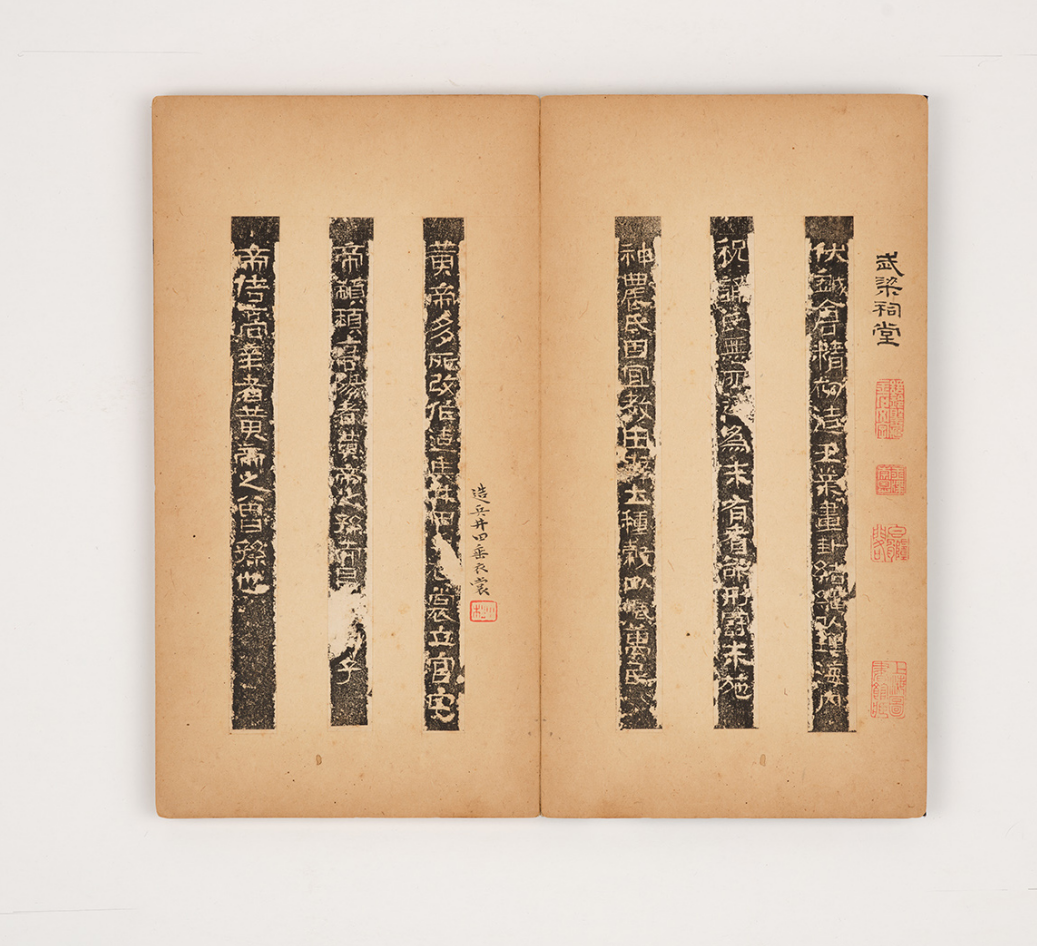 武梁祠堂
上海圖書館藏
伏戲倉精初造王業畫卦結繩以理海內
祝誦氏無所造為未有耆欲刑罰未施
神農氏因宜教田辟土種穀以振萬民
造兵井田垂衣裳
小松
黃帝多所改作造兵井田衣裳立宮宅
帝顓頊高陽者黃帝之孫而昌子
帝俈高辛者黃帝之曾孫也